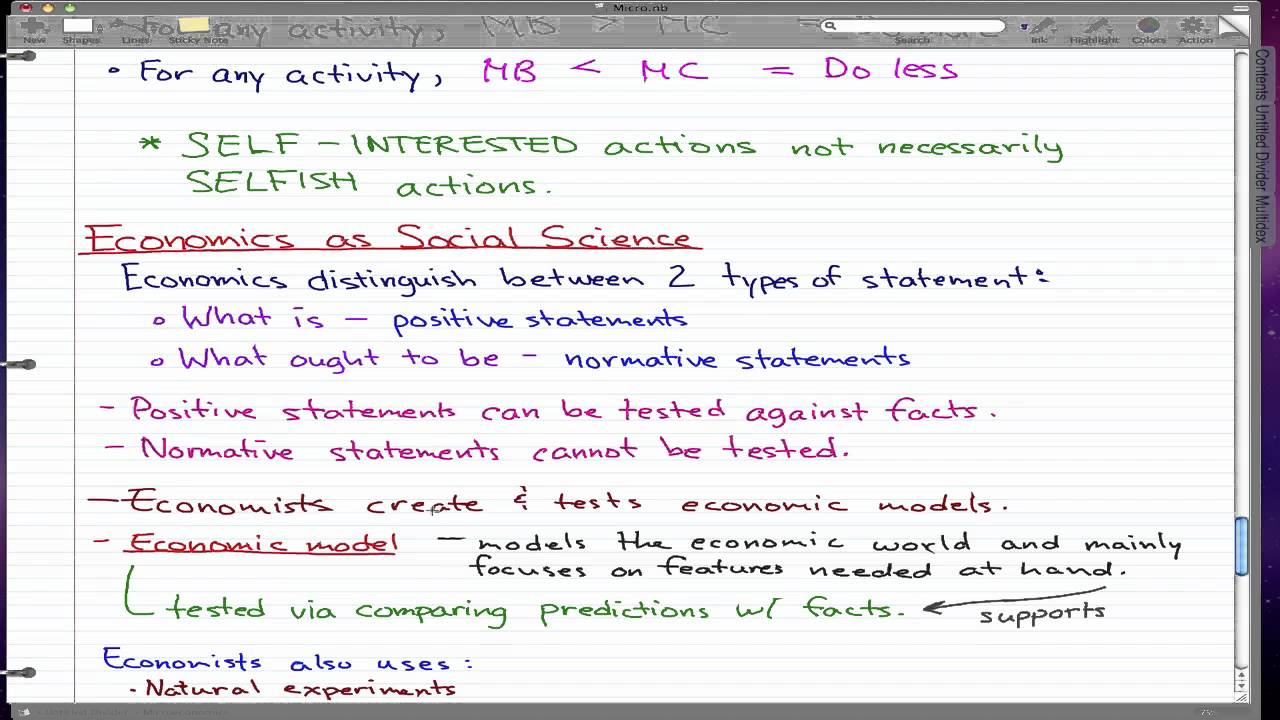 Micro.nb
For any activity, MB > MC
New Shapes Lines Sticky Note Search Ink Highlight Colors Action
• For any activity, MB < MC = Do less
* SELF-INTERESTED actions not necessarily
SELFISH actions.
Economics as Social Science
Economics distinguish between 2 types of statement:
• What is – positive statements
• What ought to be – normative statements
- Positive statements can be tested against facts.
- Normative statements cannot be tested.
- Economists create & tests economic models.
- Economic model – models the economic world and mainly
focuses on features needed at hand.
tested via comparing predictions w/ facts. ← supports
Economists also uses:
• Natural experiments
Untitled Divider - Microeconomics
Contents Untitled Divider Multidex